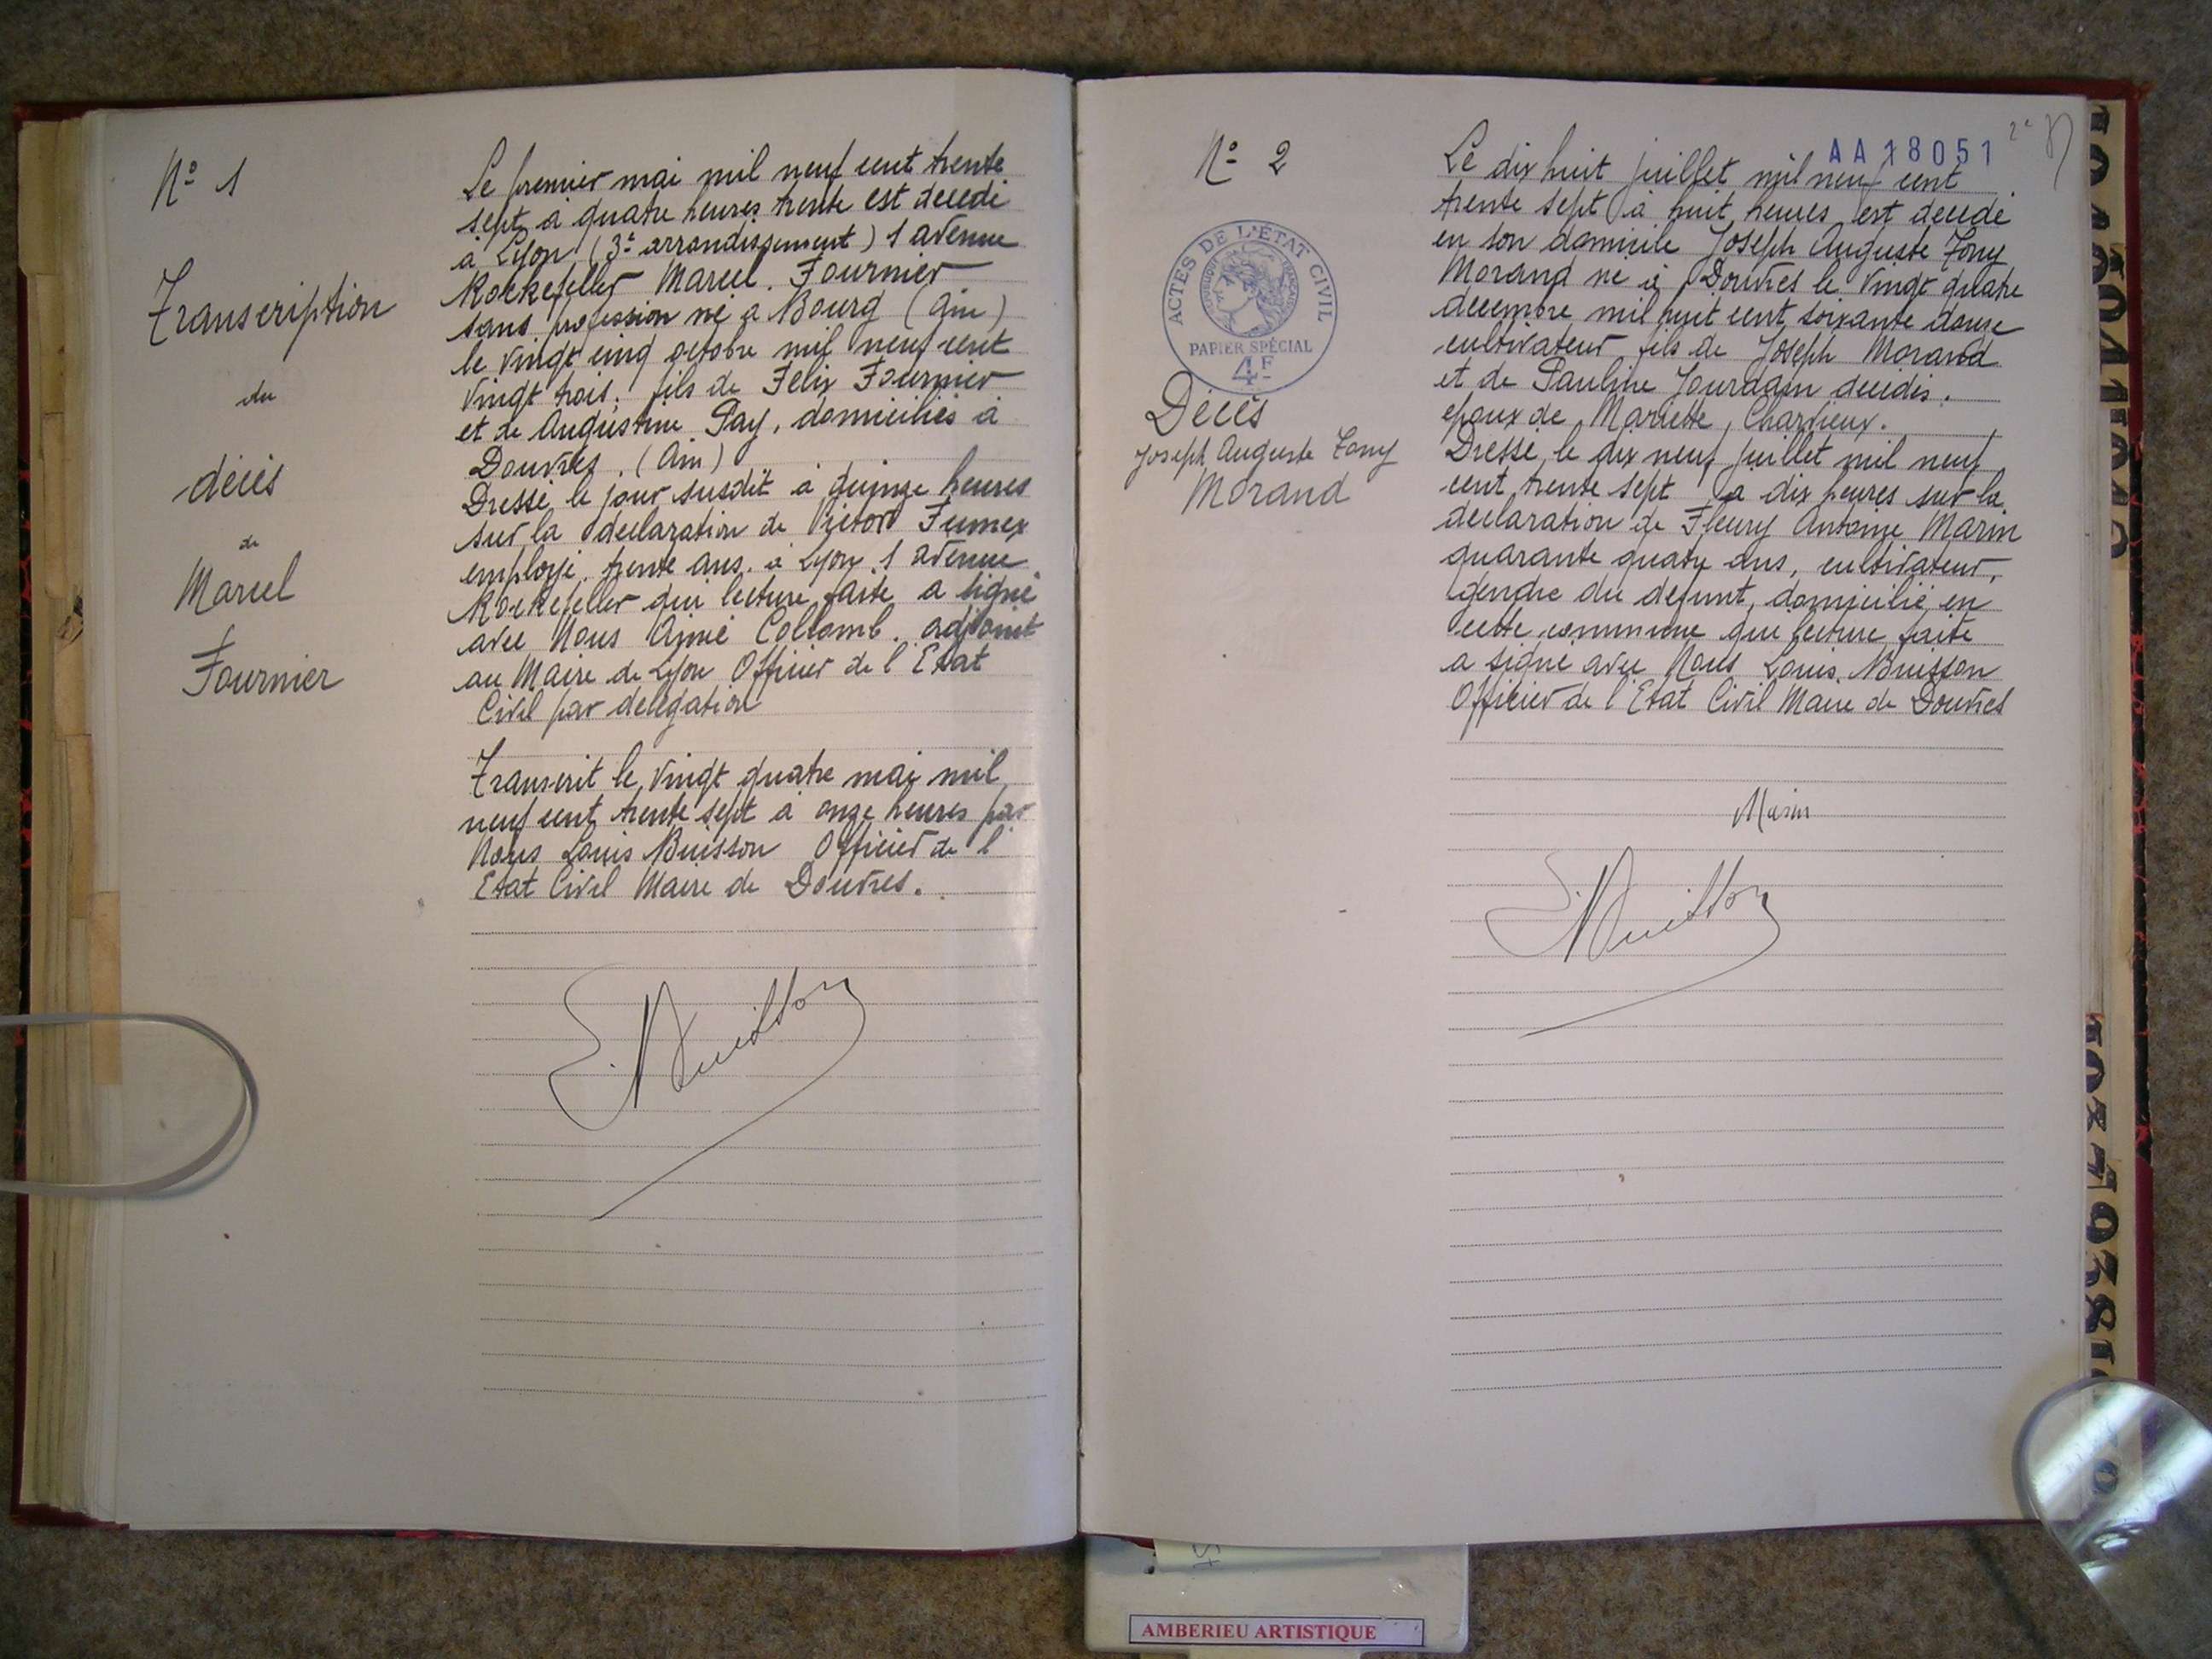 N° 1
Transcription
du
décès
de
Marcel
Fournier
Le premier mai mil neuf cent trente
sept à quatre heures trente est décédé
à Lyon (3e arrondissement) 1 avenue
Rockefeller Marcel Fournier
sans profession né à Bourg (Ain)
le vingt cinq octobre mil neuf cent
vingt trois, fils de Félix Fournier
et de Augustine Pay, domiciliés à
Douvres. (Ain)
Dressé le jour susdit à quinze heures
sur la déclaration de Victor Fumex
employé, trente ans, à Lyon 1 avenue
Rockefeller qui lecture faite a signé
avec Nous Aimé Collomb. adjoint
au Maire de Lyon Officier de l'Etat
Civil par délégation
Transcrit le vingt quatre mai mil
neuf cent trente sept à onze heures par
Nous Louis Buisson Officier de l'
Etat Civil Maire de Douvres.
L. Buisson
N° 2
ACTES DE L'ÉTAT CIVIL
RÉPUBLIQUE FRANÇAISE
PAPIER SPÉCIAL
4F
Décès
Joseph Auguste Tony
Morand
AA18051
Le dix huit juillet mil neuf cent
trente sept à huit heures est décédé
en son domicile Joseph Auguste Tony
Morand né à Douvres le vingt quatre
décembre mil huit cent soixante douze
cultivateur fils de Joseph Morand
et de Pauline Jourdain décédés.
époux de Mariette Charvieux.
Dressé le dix neuf juillet mil neuf
cent trente sept à dix heures sur la
déclaration de Fleury Antoine Marin
quarante quatre ans, cultivateur,
gendre du défunt, domicilié en
cette commune qui lecture faite
a signé avec Nous Louis Buisson
Officier de l'Etat Civil Maire de Douvres
Marin
L. Buisson
AMBERIEU ARTISTIQUE